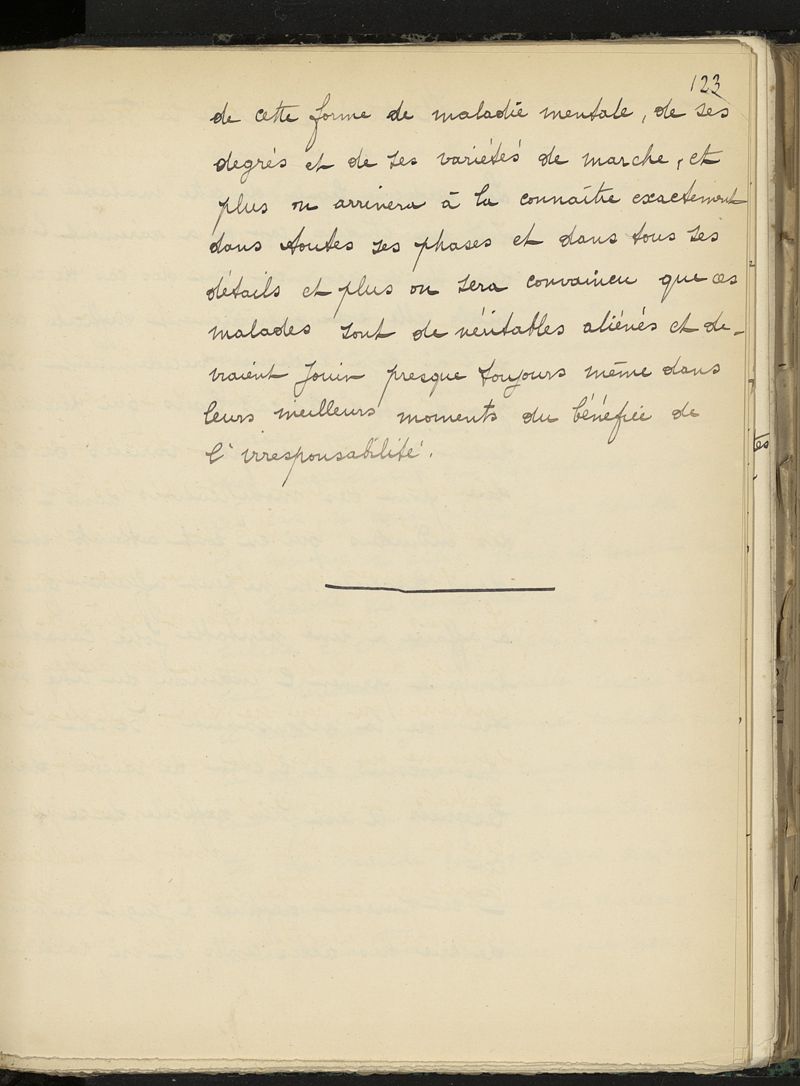 123
de cette forme de maladie mentale, de ses
degrés et de ses variétés de marche, et
plus on arrivera à la connaître exactement
dans toutes ses phases et dans tous ses
détails et plus on sera convaincu que ces
malades sont de véritables aliénés et de-
vraient jouir presque toujours même dans
leurs meilleurs moments du bénéfice de
l'irresponsabilité.
tes